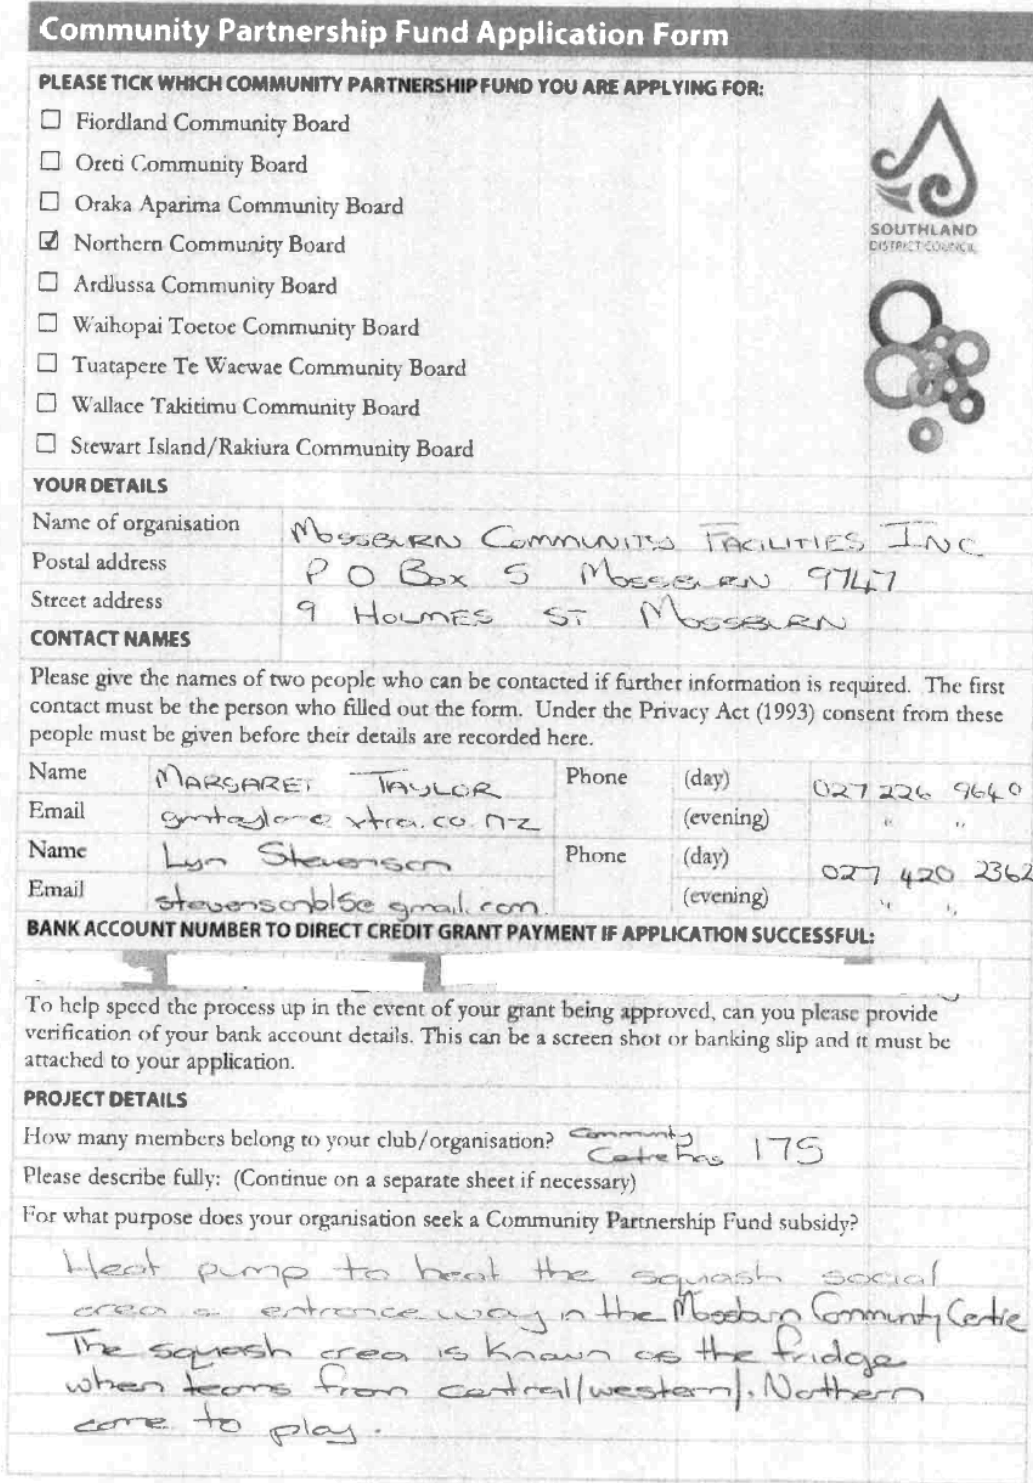 Community Partnership Fund Application Form
PLEASE TICK WHICH COMMUNITY PARTNERSHIP FUND YOU ARE APPLYING FOR:
☐ Fiordland Community Board
☐ Oreti Community Board
☐ Oraka Aparima Community Board
☑ Northern Community Board
☐ Ardlussa Community Board
☐ Waihopai Toetoe Community Board
☐ Tuatapere Te Waewae Community Board
☐ Wallace Takitimu Community Board
☐ Stewart Island/Rakiura Community Board
SOUTHLAND
DISTRICT COUNCIL
YOUR DETAILS
Name of organisation MOSSBURN COMMUNITY FACILITIES INC
Postal address P O Box 5 MOSSBURN 9747
Street address 9 HOLMES ST MOSSBURN
CONTACT NAMES
Please give the names of two people who can be contacted if further information is required. The first
contact must be the person who filled out the form. Under the Privacy Act (1993) consent from these
people must be given before their details are recorded here.
Name MARGARET TAYLOR Phone (day) 027 226 9640
Email gmtaylor@xtra.co.nz (evening) " "
Name Lyn Stevenson Phone (day) 027 420 2362
Email stevensonbl5@gmail.com. (evening) " "
BANK ACCOUNT NUMBER TO DIRECT CREDIT GRANT PAYMENT IF APPLICATION SUCCESSFUL:
To help speed the process up in the event of your grant being approved, can you please provide
verification of your bank account details. This can be a screen shot or banking slip and it must be
attached to your application.
PROJECT DETAILS
How many members belong to your club/organisation? Community Cetre has 175
Please describe fully: (Continue on a separate sheet if necessary)
For what purpose does your organisation seek a Community Partnership Fund subsidy?
Heat pump to heat the squash social
area & entrance way in the Mossburn Community Centre
The squash area is known as the fridge
when teams from central/western/. Northern
come to play.